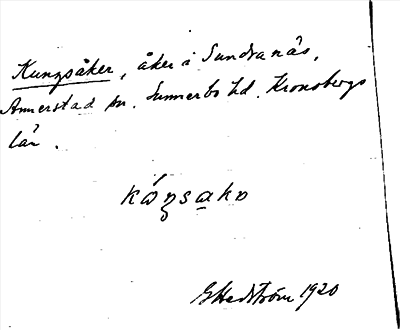 Kungsåker, åker i Sundranäs,
Annerstad sn. Sunnerbo hd. Kronobergs
län.
kóŋsakn
GHedström 1920